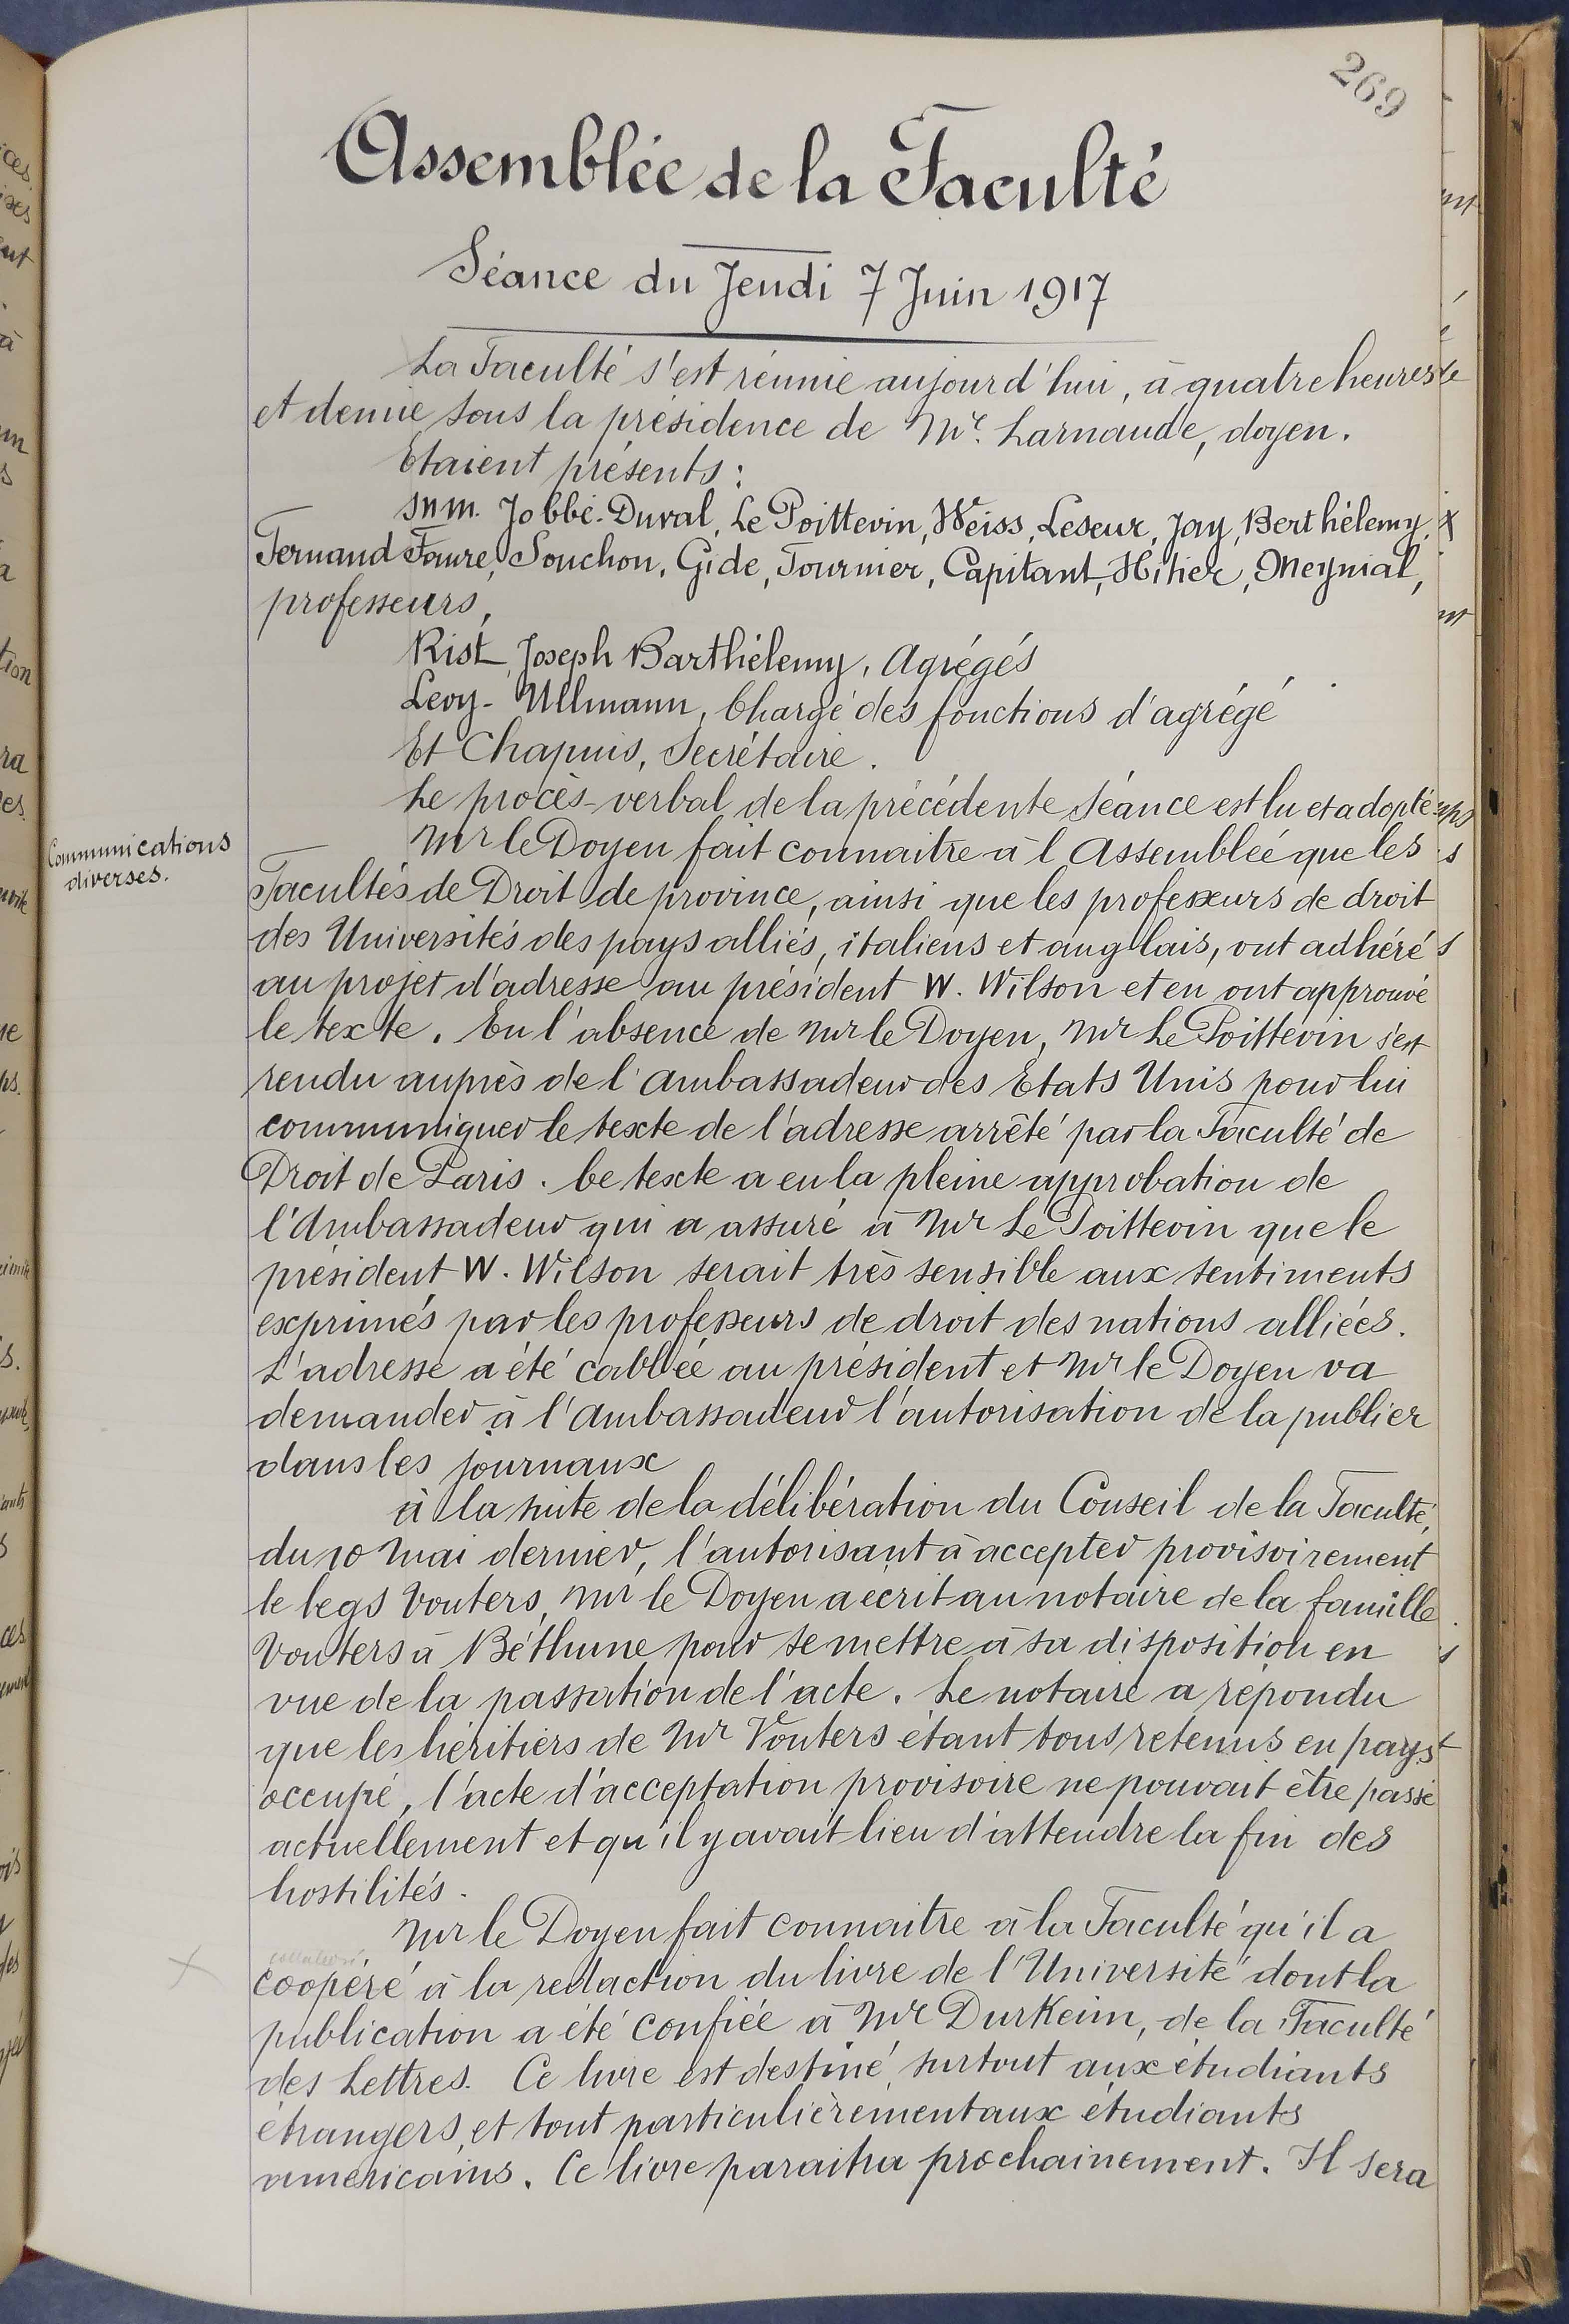 269
Assemblée de la Faculté
Séance du Jeudi 7 Juin 1917
La Faculté s'est réunie aujourd'hui, à quatre heures
et demie sous la présidence de Mr. Larnaude, doyen.
Etaient présents :
MM. Jobbé-Duval, Le Poittevin, Weiss, Leseur, Jay, Berthélemy,
Fernand Faure, Souchon, Gide, Tournier, Capitant, Hitier, Meynial,
professeurs,
Rist, Joseph Barthélemy, Agrégés
Levy-Ullmann, Chargé des fonctions d'agrégé
Et Chapuis, Secrétaire.
Le procès-verbal de la précédente séance est lu et adopté
Communications
diverses.
Mr le Doyen fait connaitre à l'Assemblée que les
Facultés de Droit de province, ainsi que les professeurs de droit
des Universités des pays alliés, italiens et anglais, ont adhéré
au projet d'adresse au président W. Wilson et en ont approuvé
le texte. En l'absence de Mr le Doyen, Mr Le Poittevin s'est
rendu auprès de l'ambassadeur des Etats Unis pour lui
communiquer le texte de l'adresse arrêté par la Faculté de
Droit de Paris. Ce texte a eu la pleine approbation de
l'Ambassadeur qui a assuré à Mr Le Poittevin que le
président W. Wilson serait très sensible aux sentiments
exprimés par les professeurs de droit des nations alliées.
L'adresse a été cablée au président et Mr le Doyen va
demander à l'ambassadeur l'autorisation de la publier
dans les journaux
à la suite de la délibération du Conseil de la Faculté,
du 10 Mai dernier, l'autorisant à accepter provisoirement
le legs Vouters, Mr le Doyen a écrit au notaire de la famille
Vouters à Béthune pour se mettre à sa disposition en
vue de la passation de l'acte. Le notaire a répondu
que les héritiers de Mr Vouters étant tous retenus en pays
occupé, l'acte d'acceptation provisoire ne pouvait être passé
actuellement et qu'il y avait lieu d'attendre la fin des
hostilités.
Mr le Doyen fait connaitre à la Faculté qu'il a
coopéré à la rédaction du livre de l'Université dont la
publication a été confiée à Mr Durkeim, de la Faculté
des Lettres. Ce livre est destiné surtout aux étudiants
étrangers, et tout particulièrement aux étudiants
américains. Ce livre paraitra prochainement. Il sera